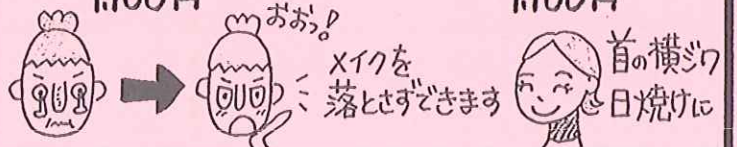 おおっ!
メイクを
落とさずできます
首の横ジワ
日焼けに